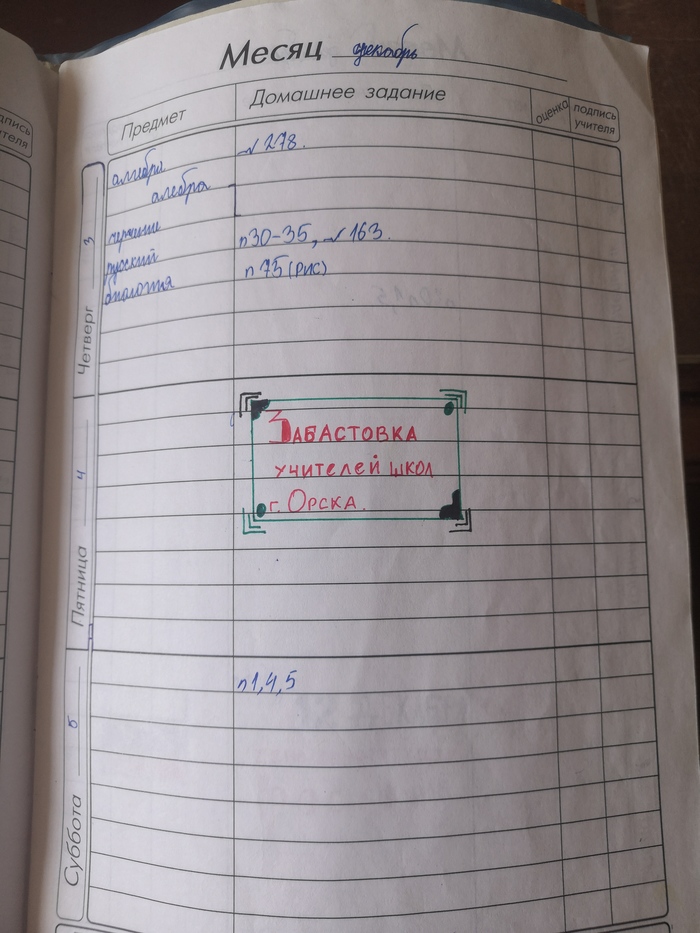 Месяц декабрь
Предмет Домашнее задание оценка подпись учителя
Четверг 3
алгебра № 278.
алгебра
черчение
русский п30-35, № 163.
биология п 75 (рис)
Пятница 4
Забастовка
учителей школ
г. Орска.
Суббота 5
п1,4,5